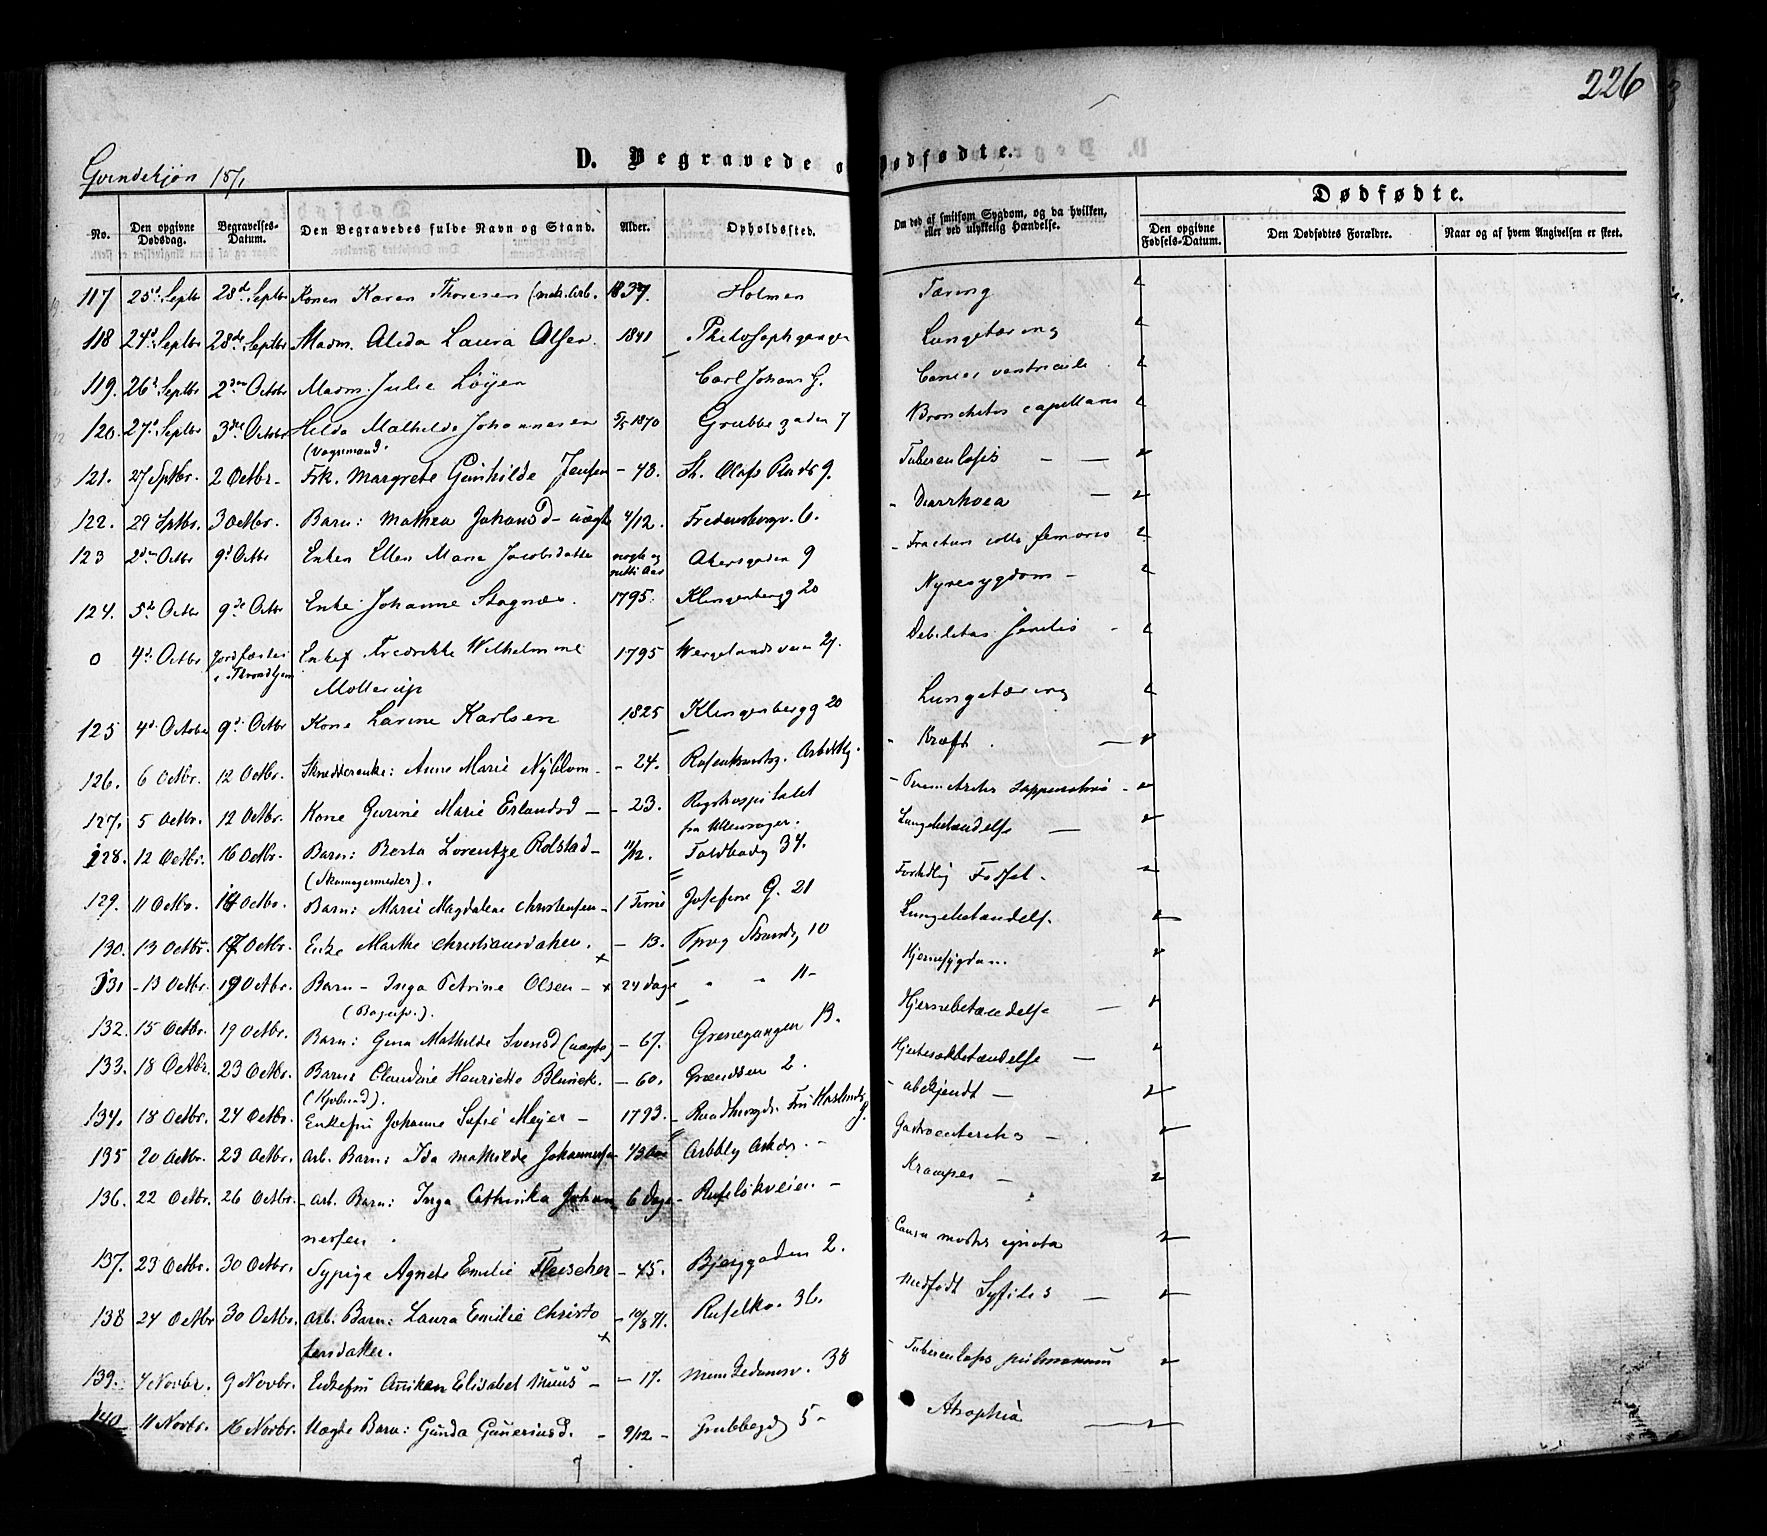 226
Qvindekjøn 1871
D. Begravede o
Dødfødte.
No. Den opgivne Dødsdag. Begravelses-Datum. Den Begravedes fulde Navn og Stand. Alder. Opholdssted. Om død af smitsom Sygdom, og da hvilken, eller ved ulykkelig Hændelse. Dødfødte.
Den opgivne Fødsels-Datum. Den Dødfødtes Forældre. Naar og af hvem Angivelsen er skeet.
117 25d Septbr 28de Septbr Konen Karen Thoresen 1837. Holmen Tæring
118 24d Septbr 28de Septbr Madm. Alida Laura Olsen 1841 Philosophgangen Lungetæring
119. 26d Septbr 2den Octobr Madm. Julie Løyen Carl Johans G. Cancer ventriculi
120. 27d Septbr 3die Octobr Hilda Mathilde Johannesen 5/5 1870 Grubbegaden 7 Bronchitis capillaris
(Vognmand.
121. 27 Sptbr. 2 Octbr. Frk. Margrete Gunhilde Jensen – 48. St. Olafs Plads 9. Tuberculosis
122. 29 Sptbr. 3 Octbr. Barn: Mathea Johansd – uægte 4/12. Fredensborgv. 6. Diarrhoea
123 2den Octbr 9d Octbr Enken Ellen Marie Jacobsdatter nogle og otti Aar Akersgaden 9 Fractura colli femoris
124. 5te Octbr 9de Octbr Enke Johanne Stagnæs. 1795. Klingenbergg 20 Nyresygdom
0 4d. Octbr Jordfæstet i Throndhjem Enkef Fredrikke Wilhelmine 1795 Wergelandsveien 21. Debilitas senilis
Møllerup
125 4d October 9d. Octbr Kone Larine Karlsen 1825 Klingenbergg 20 Lungetæring
126. 6 Octbr. 12 Octbr. Skrædderenke: Anne Marie Nyblom – 24. Rosenkrantzg. Kræft
127. 5 Octbr. 12 Octbr. Kone Gurine Marie Erlandsd – 23. Rigshospitalet
fra Ullensager.
128. 12 Octbr. 16 Octbr. Barn: Berta Lorentze Rolstad – 11/12. Toldbodg 34. Lungebetændelse
(Skomagermester).
129. 11 Octbr. 14 Octbr. Barn: Marie Magdalene Christensen – 1 Time Josefine G. 21 Fortidlig Fødsel.
130. 13 Octbr. 17 Octbr. Enke Marthe Christiansdatter. – 13. 10 Lungebetændelse
131 – 13 Octbr. 19 Octbr. Barn – Inga Petrine Olsen – 24 dage " " 11 – Hjernesygdom.
132. 15 Octbr. 19 Octbr. Barn: Gina Mathilde Svensd (uægte) – 67. Grensegangen 13. Hjernebetændelse
133. 18 Octbr. 23 Octbr. Barn: Claudine Henriette Blunck. – 60. Grændsen 2.
134. 18 Octbr. 24 Octbr. Enkefru Johanne Sofie Meyer – 1793. ubekjendt
135 20 Octbr. 23 Octbr. Arb. Barn: Ida Mathilde Johannesen Gastroenteritis
136. 22 Octbr. 26 Octbr. – Arb. Barn: Inga Cathinka Johan 6 Dage – Ruseløkveien – Kramper
nessen.
137. 23 Octbr. 30 Octbr. Sypige Agnete Emilie Fleischer – 45. Bjerggaden 2. Causa mortis ignota
138 24 Octbr 30 Octbr. Arb. Barn: Laura Emilie Christo – 10/8 71. Ruselkv. 36. Medfødt Syfilis
fersdatter.
139. 4 Novbr. 9 Novbr. Enkefru Anniken Elisabet Muus – – 17. 38 Tuberculosis pulmonum
140 11 Novbr. 16 Novbr. Uægte Barn: Gunda Guneriusd. – 9/12 – Grubbegd 5 – Atrophia